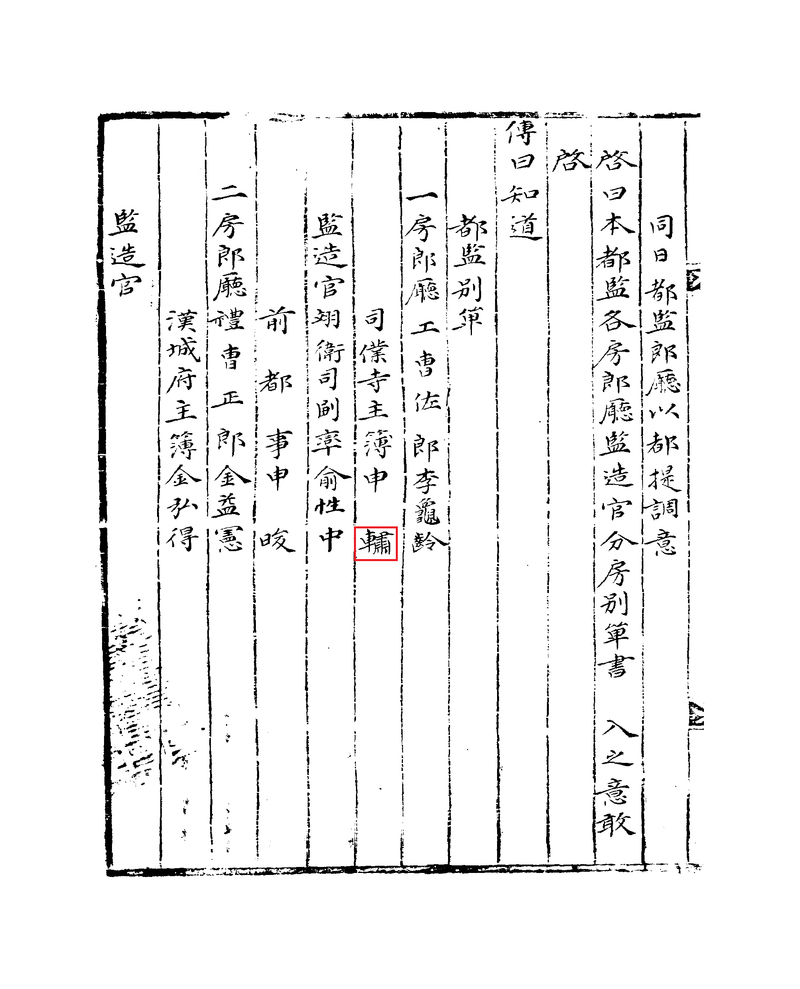 同日都監郎廳以都提調意
啓曰本都監各房郎廳監造官分房別單書 入之意敢
啓
傳曰知道
都監別單
一房郎廳工曹佐郎李龜齡
司僕寺主簿申
監造官翊衛司副率俞性中
前都事申晙
二房郎廳禮曹正郎金益憲
漢城府主簿金弘得
監造官